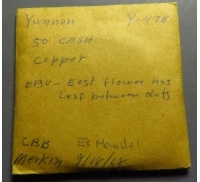 Yunnan Y-478
50 CASH
Copper
OBV - East flower has
Leaf between dots
CBB
Merkin 9/18/68